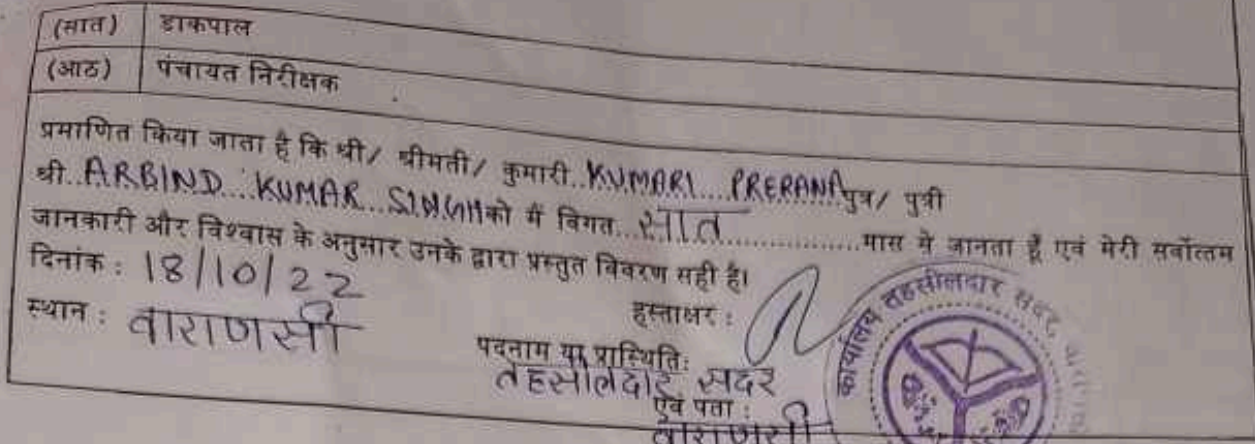 (सात) डाकपाल
(आठ) पंचायत निरीक्षक
प्रमाणित किया जाता है कि श्री/ श्रीमती/ कुमारी..KUMARI...PRERANA पुत्र/ पुत्री
श्री..ARBIND...KUMAR...SINGH को मैं विगत...सात...................मास से जानता हूँ एवं मेरी सर्वोत्तम
जानकारी और विश्वास के अनुसार उनके द्वारा प्रस्तुत विवरण सही है।
दिनांक : 18/10/22
हस्ताक्षर :
स्थान : वाराणसी
पदनाम या प्रास्थिति:
तहसीलदार सदर
एवं पता :
वाराणसी
कार्यालय तहसीलदार सदर,